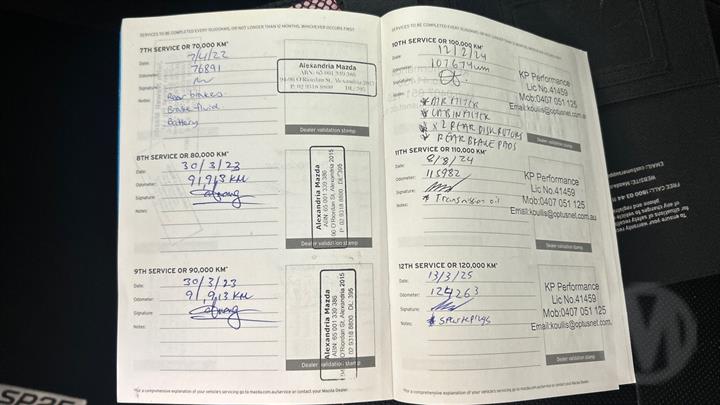 SERVICES TO BE COMPLETED EVERY 10,000KMS, OR NOT LONGER THAN 12 MONTHS, WHICHEVER OCCURS FIRST
7TH SERVICE OR 70,000 KM*
Date: 7/4/22
Odometer: 76891
Signature:
Notes: Rear brakes.
Brake fluid.
Battery
Alexandria Mazda
ABN: 65 001 339 386
P: 02 9318 8800 DL: 395
Dealer validation stamp
8TH SERVICE OR 80,000 KM*
Date: 30/3/23
Odometer: 91,913 KM
Signature:
Notes:
Alexandria Mazda
ABN: 65 001 339 386
O'Riordan St, Alexandria 2015
P: 02 9318 8800 DL: 395
Dealer validation stamp
9TH SERVICE OR 90,000 KM*
Date: 30/3/23
Odometer: 91,913 KM
Signature:
Notes:
Alexandria Mazda
ABN: 65 001 339 386
O'Riordan St, Alexandria 2015
02 9318 8800 DL: 395
Dealer validation stamp
*For a comprehensive explanation of your vehicle's servicing go to mazda.com.au/service or contact your Mazda Dealer.
10TH SERVICE OR 100,000 KM*
Date: 12/2/24
Odometer: 107674km
Signature:
Notes:
* AIR FILTER
* CABIN FILTER
* X2 REAR DISK ROTORS
* REAR BRAKE PADS
KP Performance
Lic No.41459
Mob:0407 051 125
Email:koullis@optusnet.com.au
Dealer validation stamp
11TH SERVICE OR 110,000 KM*
Date: 8/8/24
Odometer: 115982
Signature:
Notes: * Transmission oil
KP Performance
Lic No.41459
Mob:0407 051 125
Email:koullis@optusnet.com.au
Dealer validation stamp
12TH SERVICE OR 120,000 KM*
Date: 13/3/25
Odometer: 124263
Signature:
Notes: * Spark plugs
KP Performance
Lic No.41459
Mob:0407 051 125
Email:koullis@optusnet.com.au
Dealer validation stamp
*For a comprehensive explanation of your vehicle's servicing go to mazda.com.au/service or contact your Mazda Dealer.
SP25
M